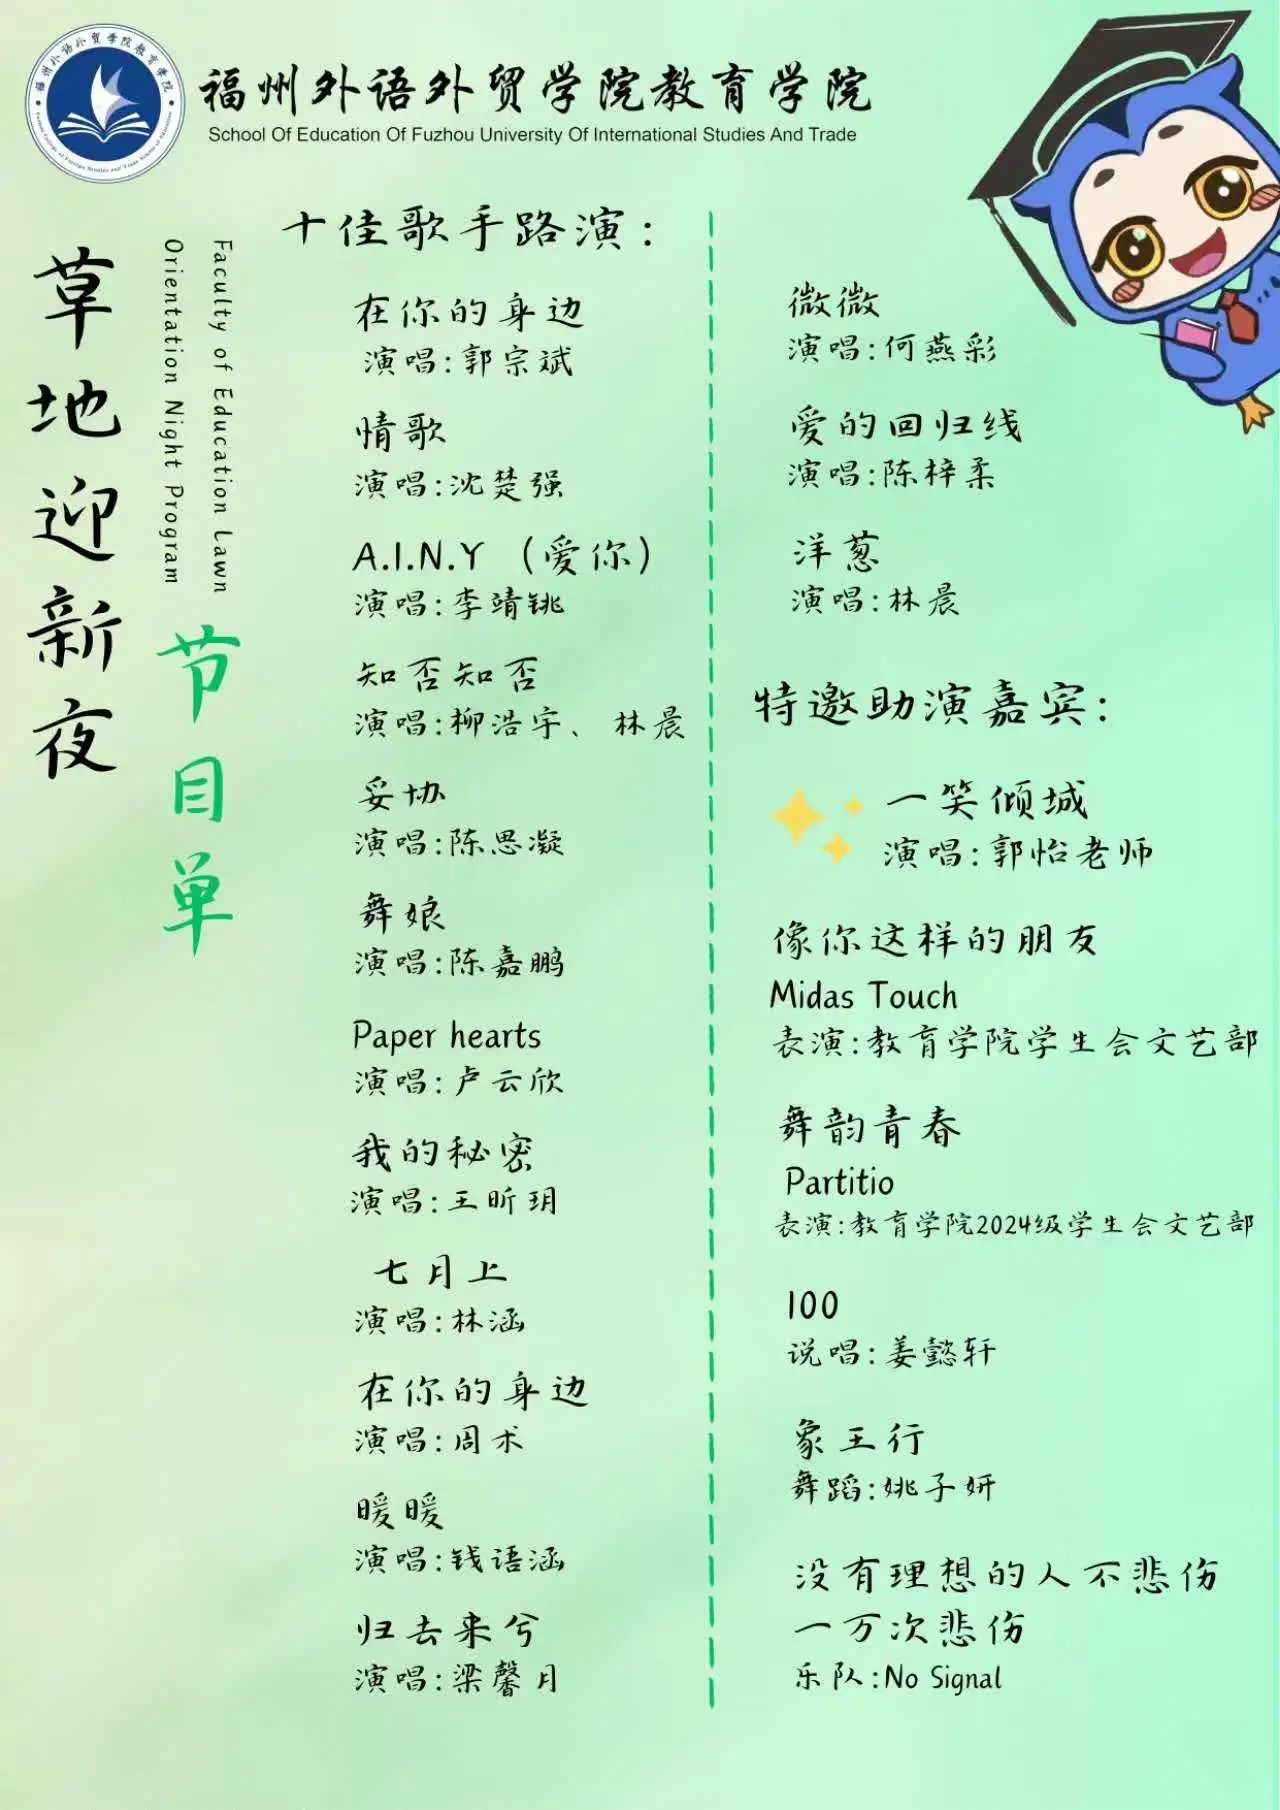 福州外语外贸学院教育学院
School Of Education Of Fuzhou University Of International Studies And Trade
草地迎新夜
Faculty of Education Lawn
Orientation Night Program
节目单
十佳歌手路演：
在你的身边
演唱：郭宗斌
情歌
演唱：沈楚强
A.I.N.Y （爱你）
演唱：李靖铫
知否知否
演唱：柳浩宇、林晨
妥协
演唱：陈思凝
舞娘
演唱：陈嘉鹏
Paper hearts
演唱：卢云欣
我的秘密
演唱：王昕玥
七月上
演唱：林涵
在你的身边
演唱：周术
暖暖
演唱：钱语涵
归去来兮
演唱：梁馨月
微微
演唱：何燕彩
爱的回归线
演唱：陈梓柔
洋葱
演唱：林晨
特邀助演嘉宾：
一笑倾城
演唱：郭怡老师
像你这样的朋友
Midas Touch
表演：教育学院学生会文艺部
舞韵青春
Partitio
表演：教育学院2024级学生会文艺部
100
说唱：姜懿轩
象王行
舞蹈：姚子妍
没有理想的人不悲伤
一万次悲伤
乐队：No Signal